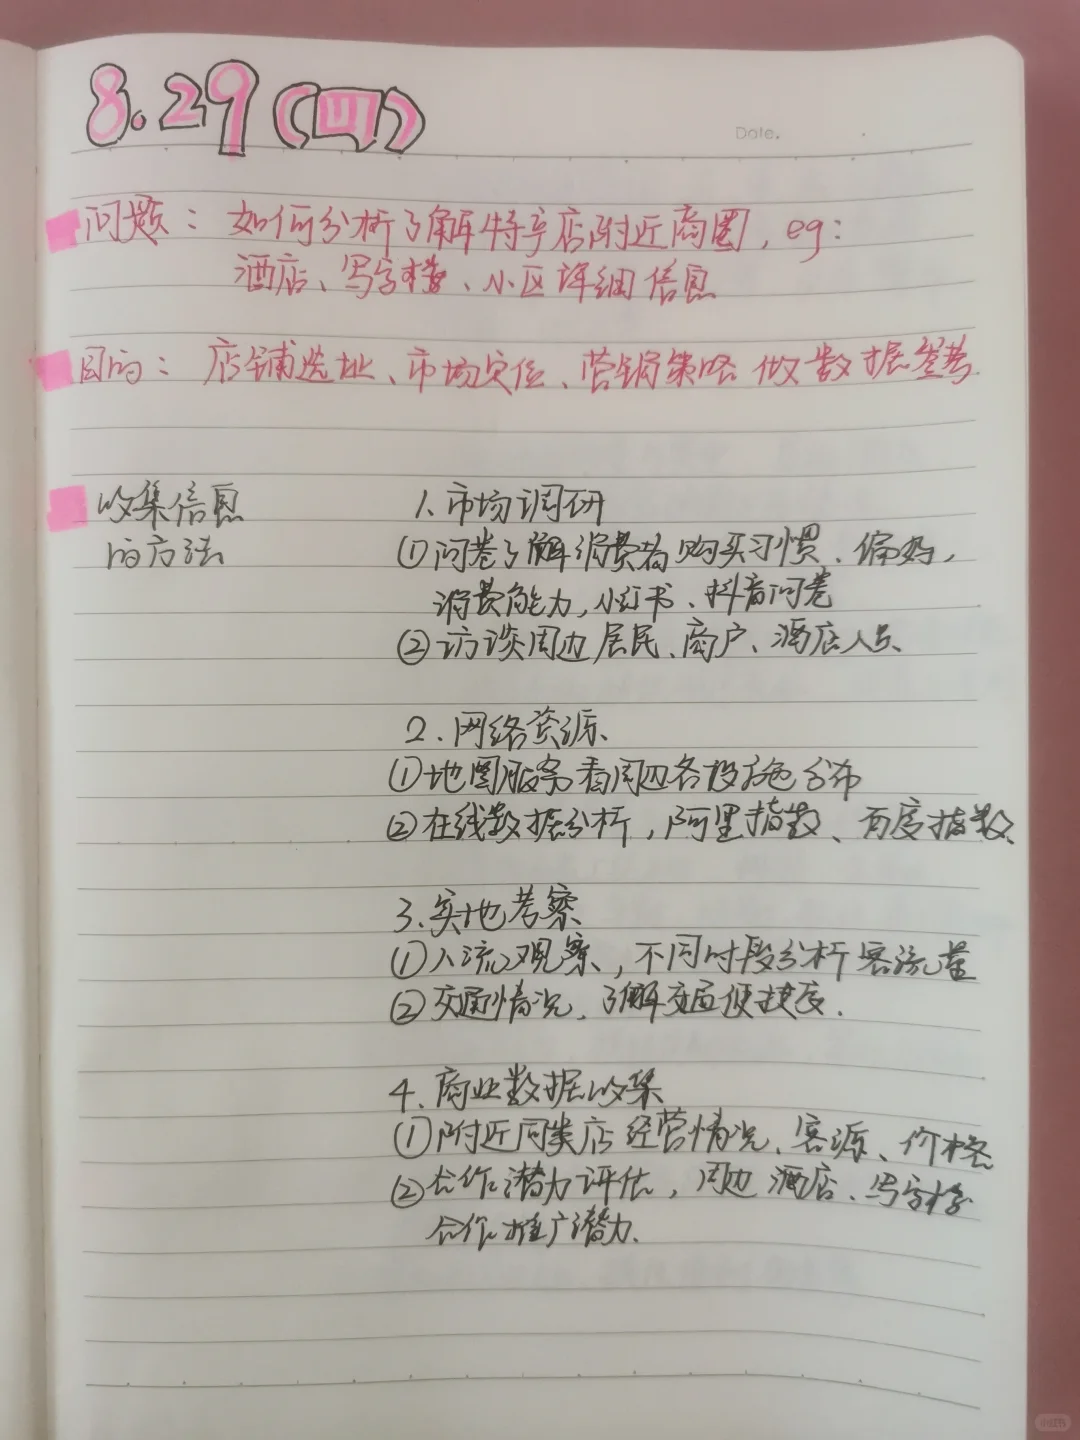 8.29(四)
Date.
问题：如何分析了解特享店附近商圈，eg：
酒店、写字楼、小区详细信息
目的：店铺选址、市场定位、营销策略做数据参考
收集信息
的方法
1、市场调研
①问卷了解消费者购买习惯、偏好，
消费能力，小红书、抖音问卷
②访谈周边居民、商户、酒店人员、
2.网络资源、
①地图服务看周边各设施分布
②在线数据分析，阿里指数、百度指数、
3.实地考察
①人流观察，不同时段分析客流量
②交通情况，了解交通便捷度.
4.商业数据收集
①附近同类店经营情况、客源、价格
②合作潜力评估，周边酒店、写字楼
合作推广潜力.
小红书